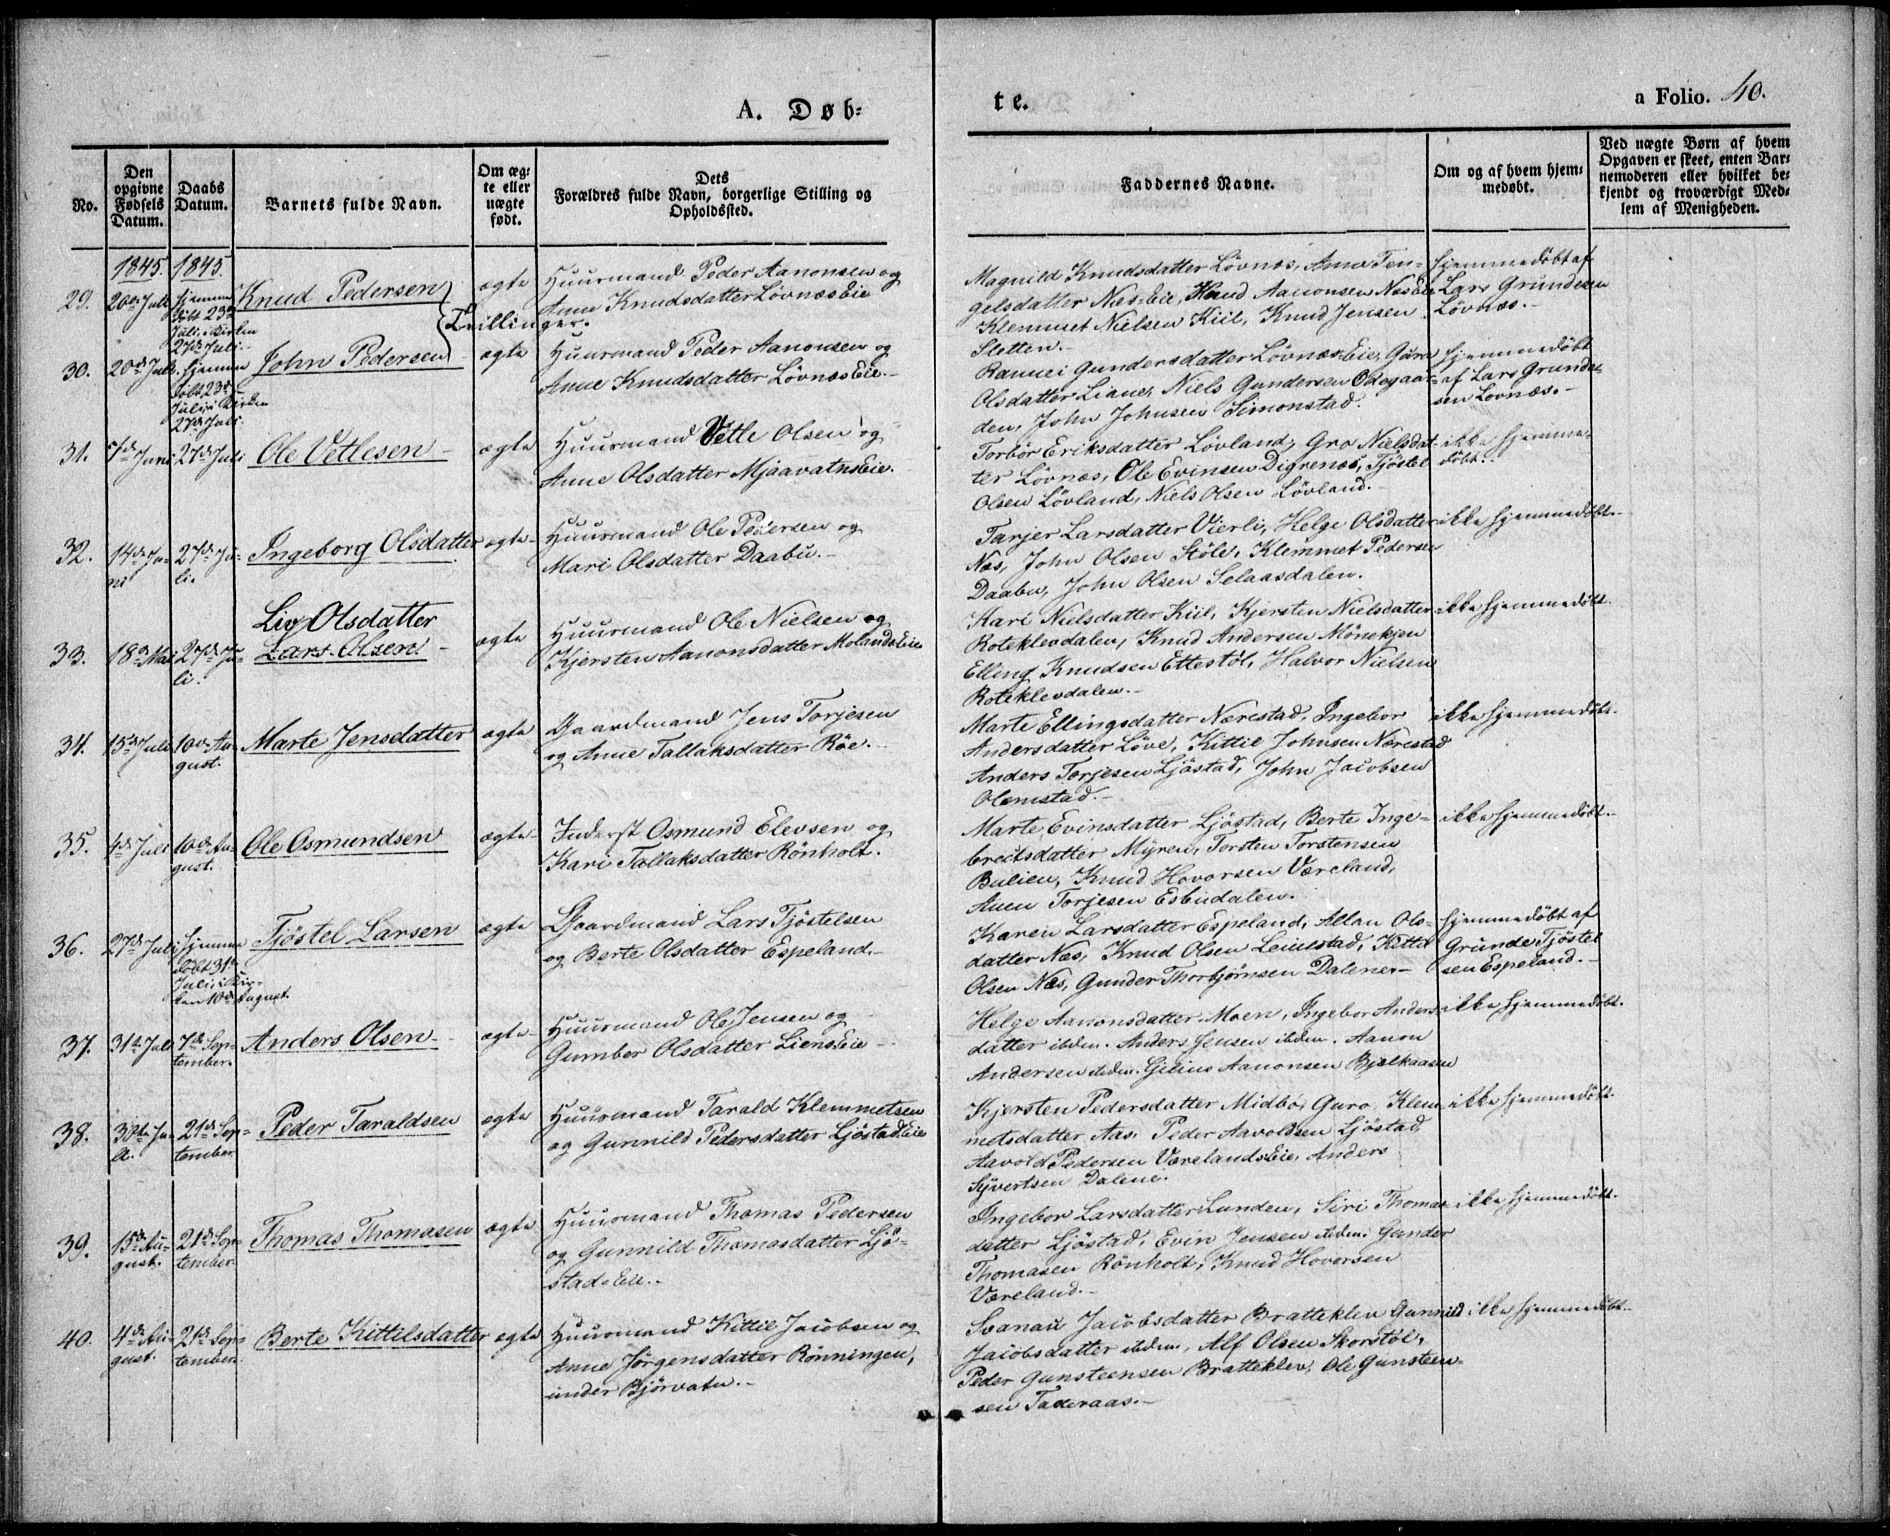 A. Døb-
te.
a Folio. 40.
No.
Den
opgivne
Fødsels
Datum.
Daabs
Datum.
Barnets fulde Navn.
Om æg-
te eller
uægte
født.
Dets
Forældres fulde Navn, borgerlige Stilling og
Opholdssted.
Faddernes Navne.
Om og af hvem hjem-
medøbt.
Ved uægte Børn af hvem
Opgaven er skeet, enten Bar-
nemoderen eller hvilket be-
kjendt og troværdigt Med-
lem af Menigheden.
1845. 1845.
29.
20de Juli
hjemme
døbt 23de
Juli, i Kirken
27de Juli.
Knud Pedersen
Tvillinger.
ægte
Huurmand Peder Aanonsen og
Anne Knudsdatter Løvnæs Eie
Magnild Knudsdatter Løvnæs, Anne Ten-
gelsdatter Næs-Eie, Knud Aanonsen Næs Eie
Klemmet Nielsen Kiil, Knud Jensen
Sletten.
hjemmedøbt af
Lars Grundesen
Løvnæs.
30.
20de Juli
hjemme
døbt 23de
Juli, i Kirken
27de Juli.
John Pedersen
ægte
Huurmand Peder Aanonsen og
Anne Knudsdatter Løvnæs Eie.
Rannei Gundersdatter Løvnæs Eie, Guro
Olsdatter Liane, Niels Gundersen Ødegaar-
den, John Johnsen Simonstad.
hjemmedøbt
af Lars Grunde-
sen Løvnæs.
31.
7de Juni
27de Juli
Ole Vetlesen
ægte
Huurmand Vetle Olsen og
Anne Olsdatter Mjaavatns Eie.
Torbør Eriksdatter Løvland, Gro Nielsdat-
ter Løvnæs, Ole Evinsen Digrenæs, Tjöstel
Olsen Løvland, Niels Olsen Løvland.
ikke hjemme-
døbt.
32.
14de Ju-
ni
27de Ju-
li.
Ingeborg Olsdatter
ægte
Huurmand Ole Pedersen og
Mari Olsdatter Daabu.
Tarjer Larsdatter Vierli, Helge Olsdatter
Næs, John Olsen Støle, Klemmet Pedersen
Daabu, John Olsen Selaasdalen.
ikke hjemmedøbt.
33.
18de Mai
27de Ju-
li.
Liv Olsdatter
Lars Olsen
ægte
Huurmand Ole Nielsen og
Kjersten Aanonsdatter Molands Eie
Kari Nielsdatter Kiil, Kjersten Nielsdatter
Roteklevdalen, Knud Andersen Mönekjen
Elling Knudsen Ettestöl, Halvor Nielsen
Roteklevdalen.
ikke hjemmedøbt.
34.
15de Juli
10de Au-
gust.
Marte Jensdatter
ægte
Gaardmand Jens Torjesen
og Anne Tallaksdatter Röe.
Marte Ellingsdatter Nærestad, Ingebor
Andersdatter Löve, Kittil Johnsen Nærestad
Anders Torjesen Ljöstad, John Jacobsen
Olemstad.
ikke hjemmedøbt.
35.
4de Juli
10de Au-
gust.
Ole Osmundsen
ægte
Inderst Osmund Elevsen og
Kari Tallaksdatter Rönholt.
Marte Evinsdatter Ljöstad, Berte Inge-
breitsdatter Myren, Torsten Torstensen
Bulien, Knud Hovorsen Væreland,
Auen Torjesen Esbudalen.
ikke hjemmedøbt.
36.
27de Juli
hjemme
døbt 31te
Juli, i Kir-
ken 10de August.
Tjöstel Larsen
ægte
Gaardmand Lars Tjöstelsen
og Berte Olsdatter Espeland.
Karen Larsdatter Espeland, Allau Ols-
datter Næs, Knud Olsen Leiulstad, Kittil
Olsen Næs, Gunder Thorbjørnsen Dalene.
hjemmedøbt af
Grunde Tjöstel-
sen Espeland.
37.
31te Juli
7de Sep-
tember.
Anders Olsen
ægte
Huurmand Ole Jensen og
Gumber Olsdatter Liens Eie
Helge Aanonsdatter Moen, Ingebor Anders-
datter ibdm. Anders Jensen ibdem. Aanon
Andersen ibdem. Gjeruis Aanonsen Bjelkaasen
ikke hjemmedøbt.
38.
30te Ju-
li.
21de Sep-
tember
Peder Taraldsen
ægte
Huurmand Tarald Klemmetsen
og Gunnild Pedersdatter Ljöstad Eie
Kjersten Pedersdatter Midbö, Guro Klem-
metsdatter Aas. Peder Aavoldsen Ljöstad
Aavold Pedersen Værelands Eie, Anders
Syvertsen Dalene.
ikke hjemmedøbt.
39.
15de Au-
gust.
21de Sep-
tember
Thomas Thomasen
ægte
Huurmand Thomas Pedersen
og Gunnild Thomasdatter Ljö-
stad-Eie.
Ingebor Larsdatter Lunden, Siri Thomas-
datter Ljöstad, Evin Jensen ibdem. Gunder
Thomasen Rönholt, Knud Hovorsen
Væreland.
ikke hjemmedøbt.
40.
4de Au-
gust.
21de Sep-
tember
Berte Kittilsdatter
ægte
Huurmand Kittil Jacobsen og
Anne Jörgensdatter Rönningen,
under Bjorvatn.
Svanau Jacobsdatter Bratteklev Gunnild
Jacobsdatter ibdem, Alf Olsen Skorstöl,
Peder Gunsteensen Bratteklev, Ole Gunsteen-
sen Taderaas.
ikke hjemmedøbt.